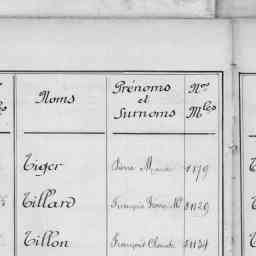 Noms
Prénoms et Surnoms
Nos Mles
Tiger Pierre Marie 1879
Tillard François Pierre Me 81129
Tillon François Claude 51134